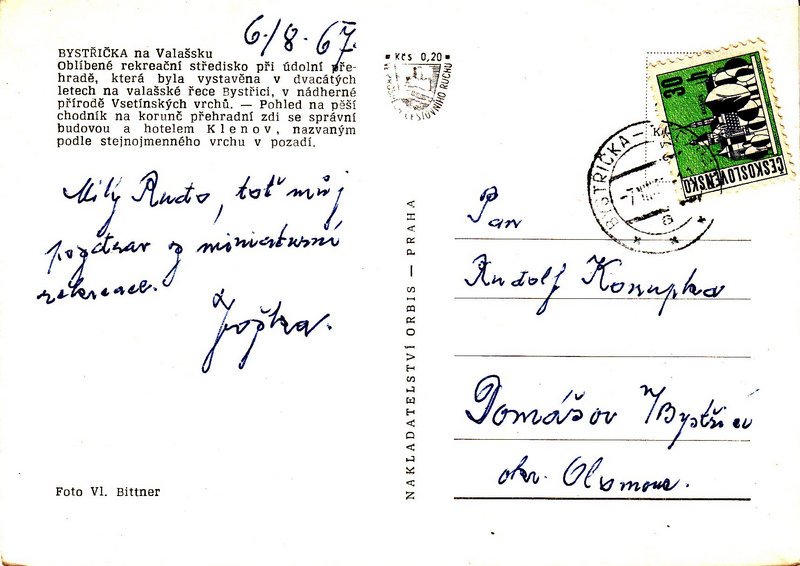 6/8. 67.
BYSTŘIČKA na Valašsku
Oblíbené rekreační středisko při údolní pře-
hradě, která byla vystavěna v dvacátých
letech na valašské řece Bystřici, v nádherné
přírodě Vsetínských vrchů. — Pohled na pěší
chodník na koruně přehradní zdi se správní
budovou a hotelem Klenov, nazvaným
podle stejnojmenného vrchu v pozadí.
Milý Rudo, toť můj
pozdrav z miniaturní
rekreace.
Joška.
Foto Vl. Bittner
NAKLADATELSTVÍ ORBIS — PRAHA
Kčs 0,20
CESTOVNÍHO RUCHU
30 h
ČESKOSLOVENSKO
BYSTŘIČKA
Pan
Rudolf Konupka
Domášov n/Bystřicí
okr. Olomouc.